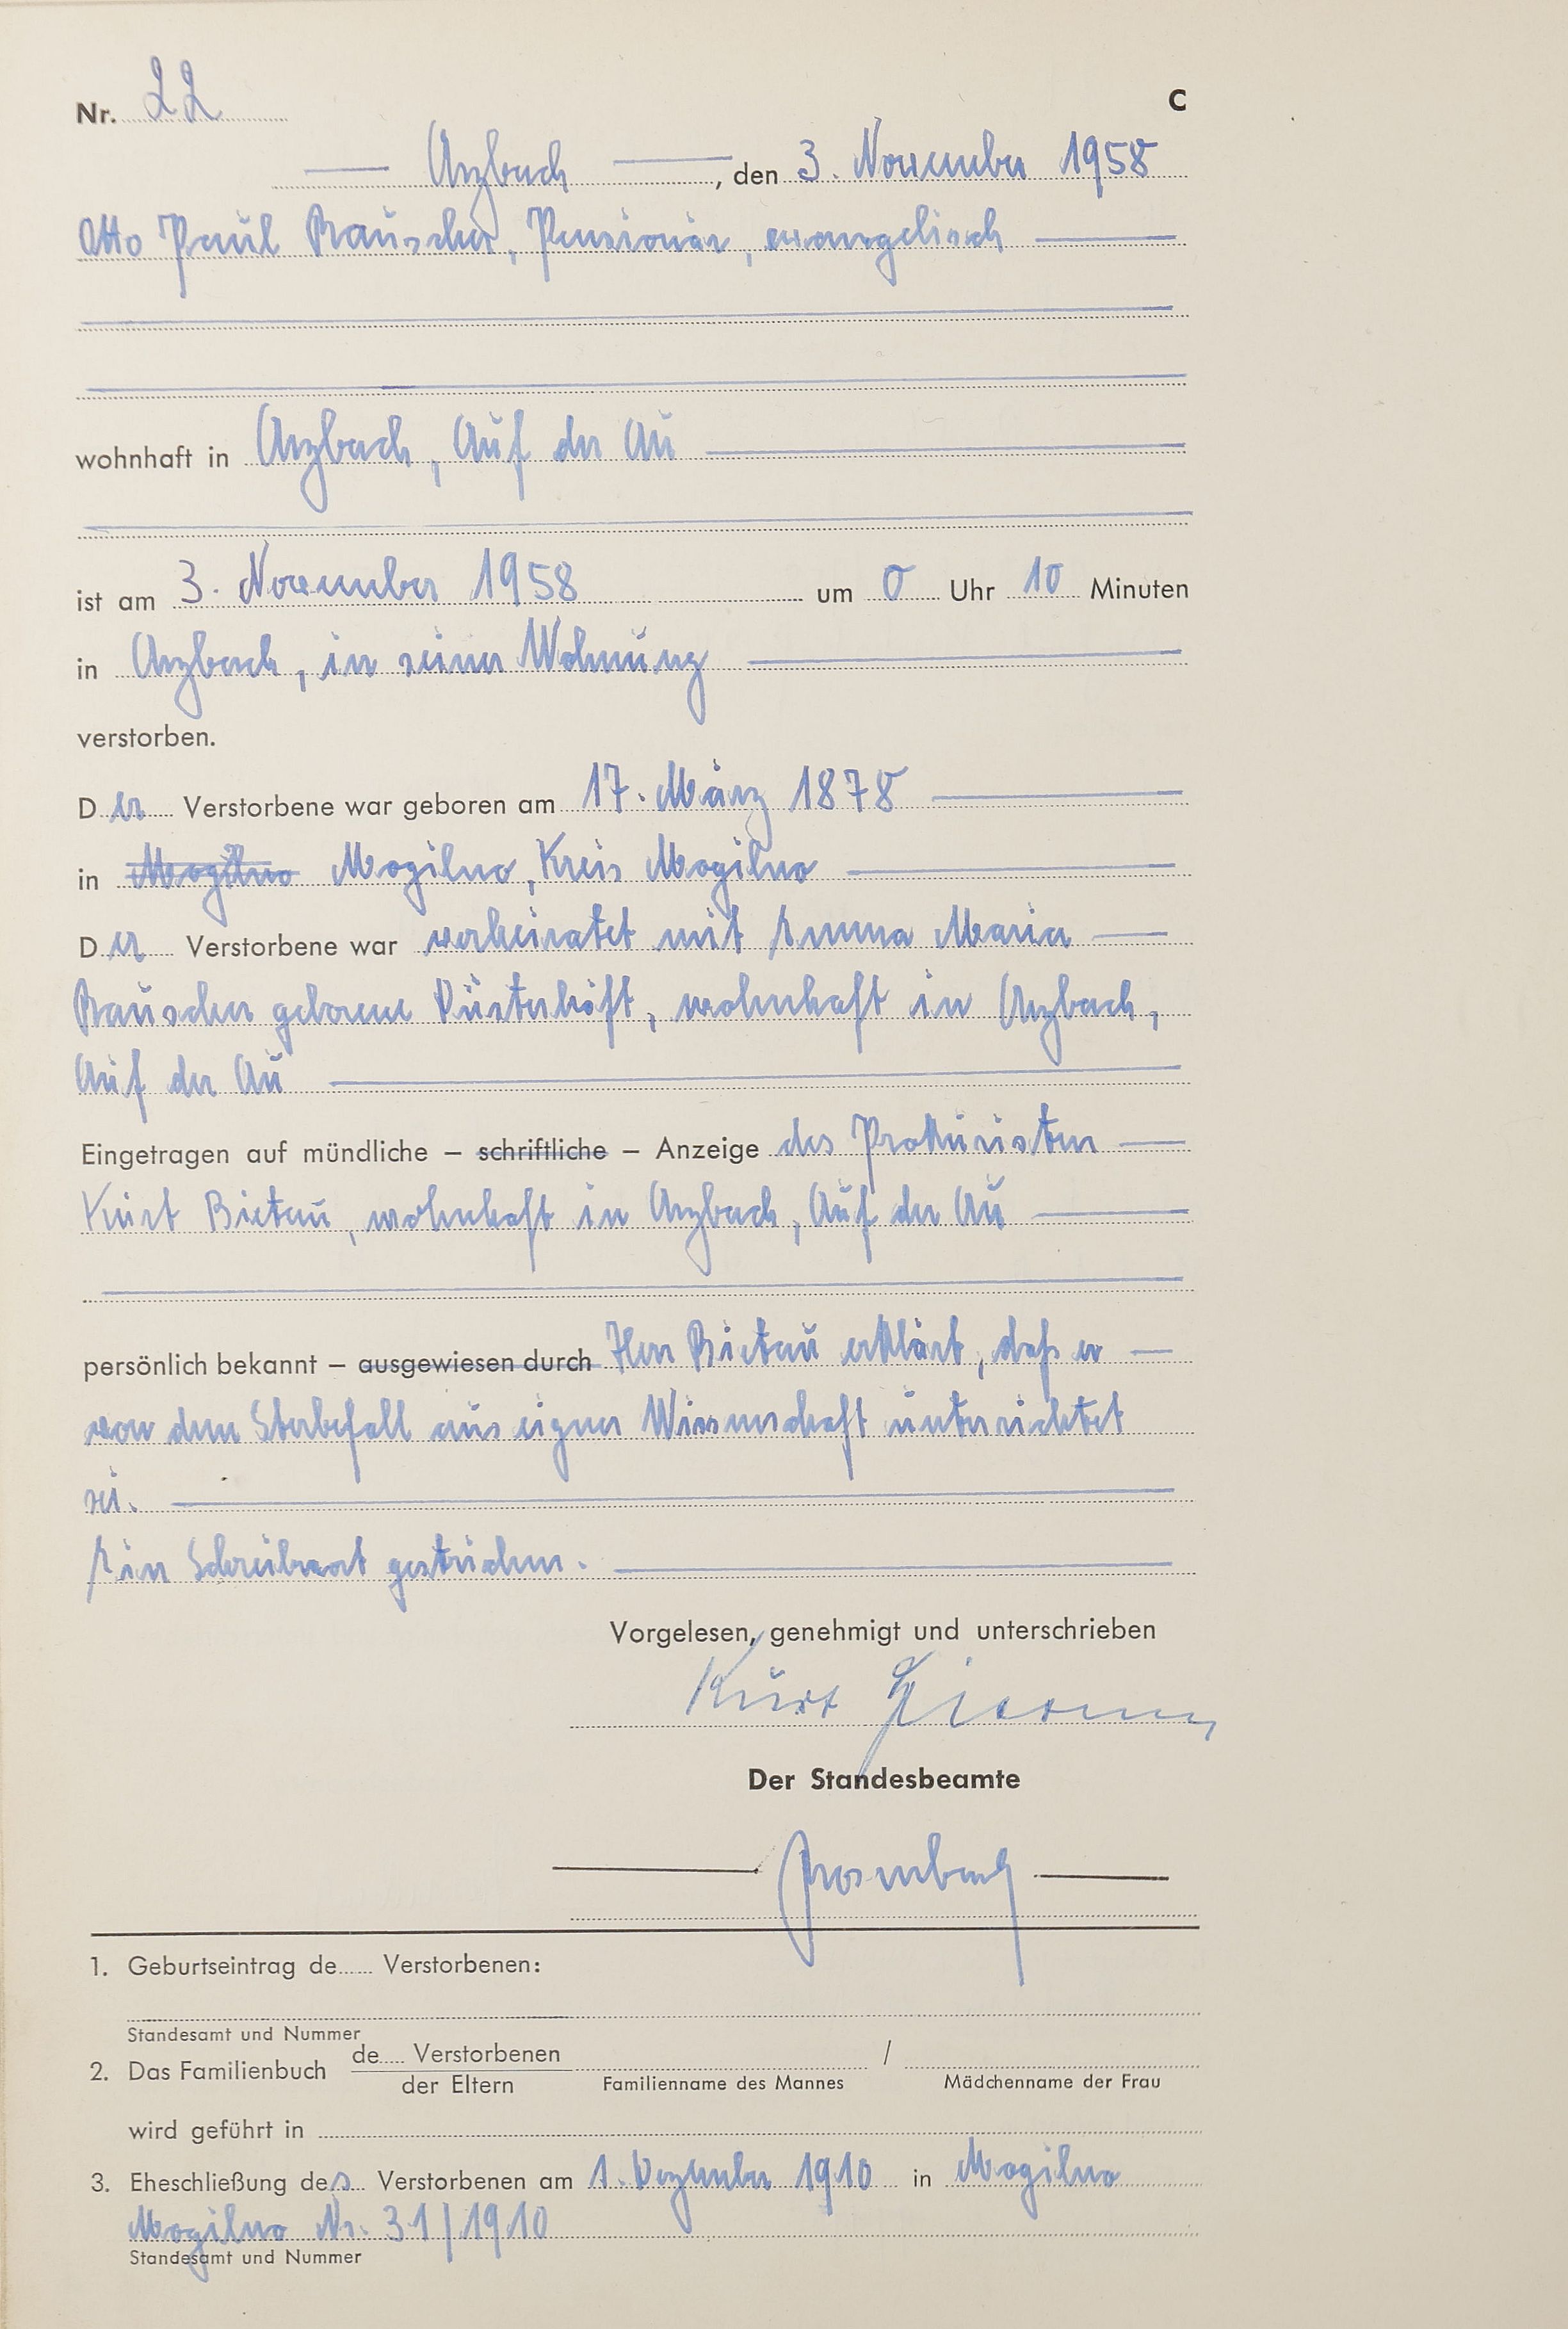 Nr. 22 C
Arzbach, den 3. November 1958
Otto Paul Rauscher, Pensionär, evangelisch
wohnhaft in Arzbach, Auf der Au
ist am 3. November 1958 um 0 Uhr 10 Minuten
in Arzbach, in seiner Wohnung
verstorben.
Der Verstorbene war geboren am 17. März 1878
in Mogilno Mogilno, Kreis Mogilno
Der Verstorbene war verheiratet mit Emma Maria
Rauscher geborene Düsterhöft, wohnhaft in Arzbach,
Auf der Au
Eingetragen auf mündliche – schriftliche – Anzeige des Prokuristen
Kurt Bietau, wohnhaft in Arzbach, Auf der Au
persönlich bekannt – ausgewiesen durch Herr Bietau erklärt, daß er
von dem Sterbefall aus eigner Wissenschaft unterrichtet
sei.
Ein Schreibwort gestrichen.
Vorgelesen, genehmigt und unterschrieben
Kurt
Der Standesbeamte
1. Geburtseintrag de...... Verstorbenen:
Standesamt und Nummer
2. Das Familienbuch de..... Verstorbenen /
der Eltern Familienname des Mannes Mädchenname der Frau
wird geführt in
3. Eheschließung des Verstorbenen am 1. Dezember 1910 in Mogilno
Mogilno Nr. 31/1910
Standesamt und Nummer